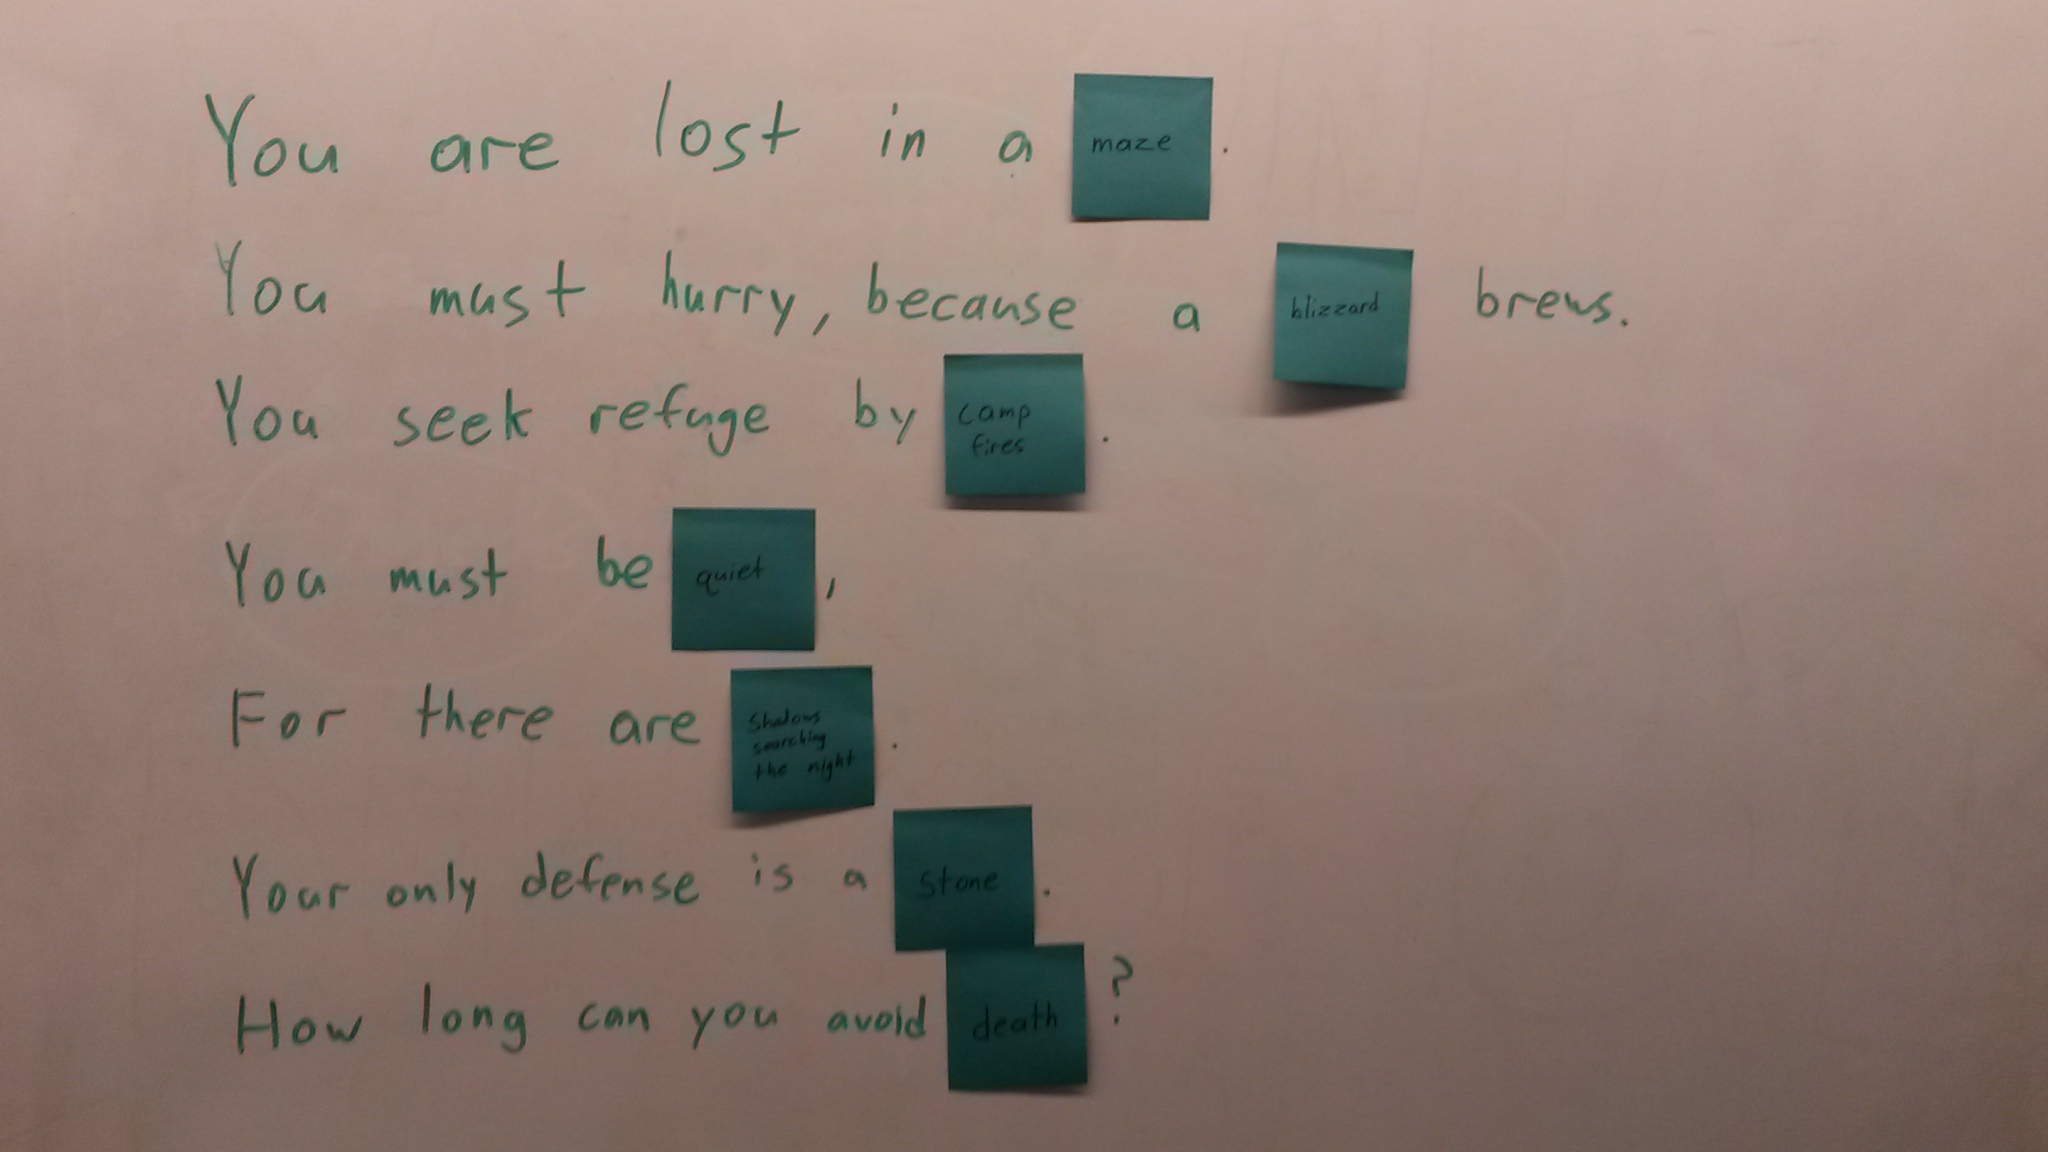 You are lost in a maze.
You must hurry, because a blizzard brews.
You seek refuge by camp fires.
You must be quiet,
For there are shadows searching the night.
Your only defense is a stone.
How long can you avoid death?